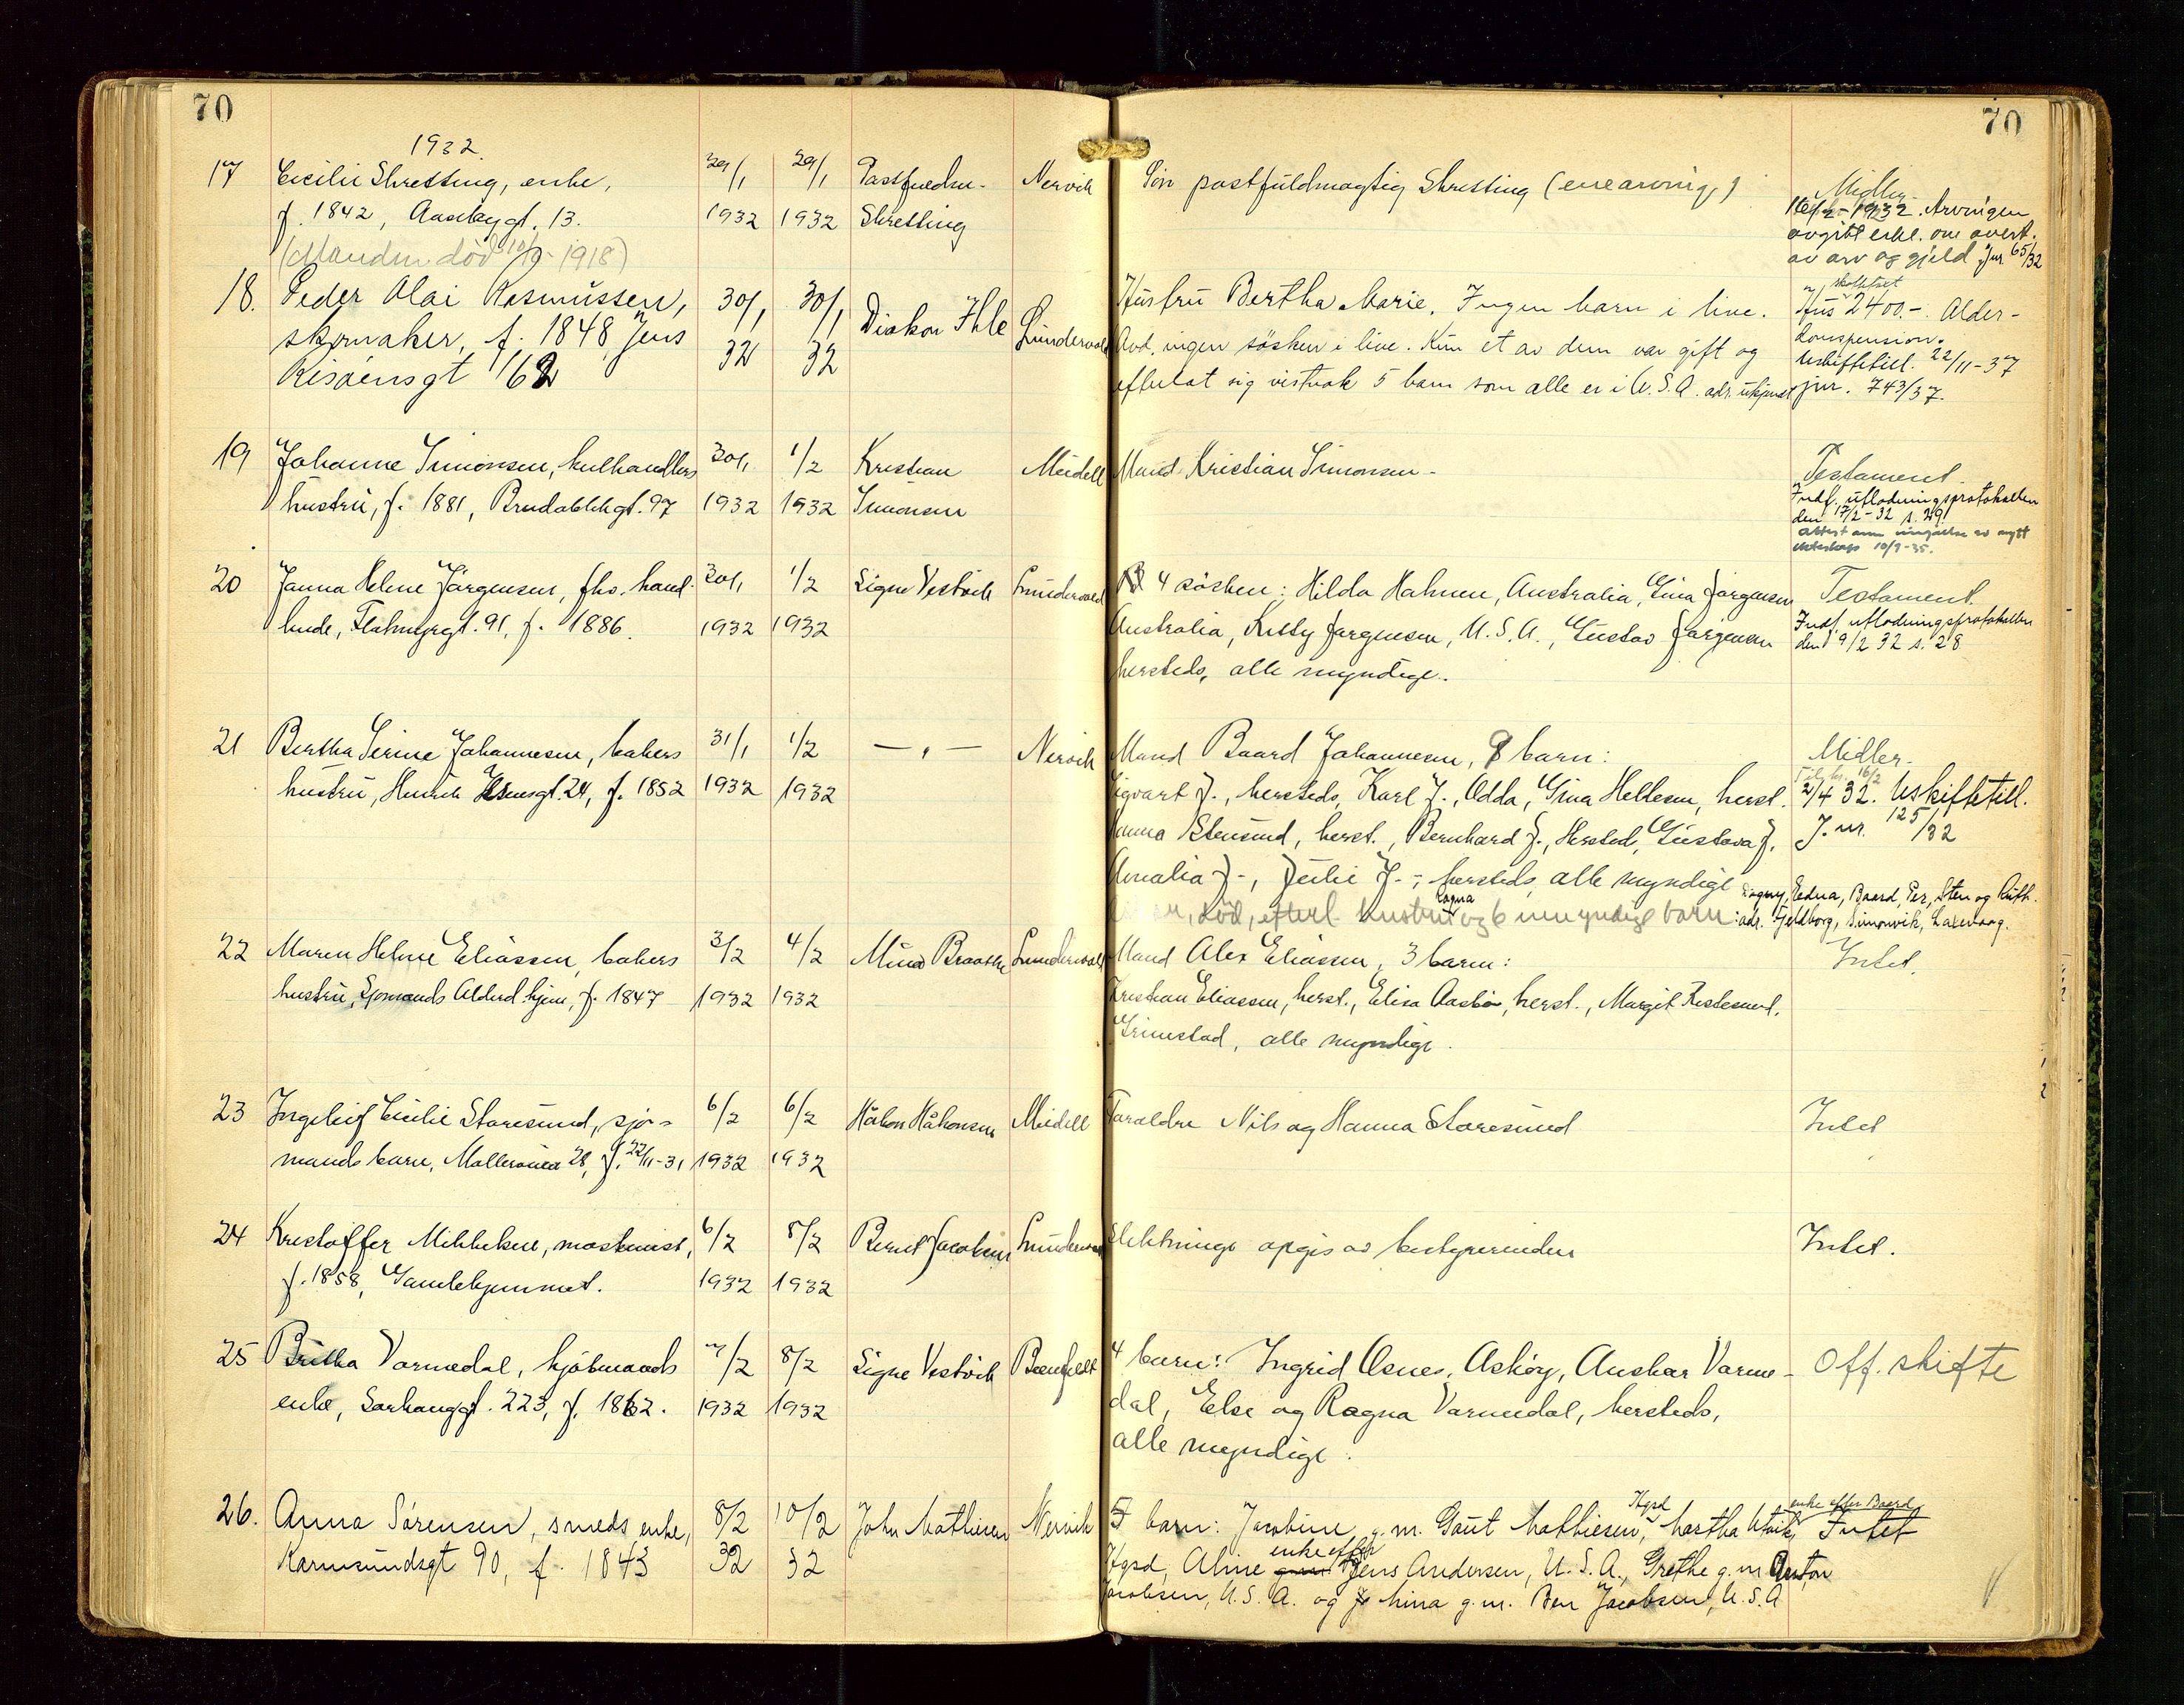 70
70
1932.
17 Cecilie Skretting, enke, 29/1 29/1 Postfuldm. Nervik Søn postfuldmægtig Skretting (enearving) Midler
f. 1842, Aasbygt. 13. 1932 1932 Skretting 16/2-1932. Arvingen
(Manden død 10/9-1918) avgitt erkl. om overt.
av arv og gjeld Jnr 65/32
18. Peder Olai Rasmussen, 30/1 30/1 Diakon Ihle Lundervold Hustru Bertha Marie. Ingen barn i live. Hus skattet 2400.-. Alder-
skomaker, f. 1848 Jens 32 32 Avd. ingen søsken i live. Kun et av dem var gift og domspension.
Risøensgt 162 efterlot sig vistnok 5 barn som alle er i U.S.A. adr. ukjendt Uskiftetill. 22/11-37
jnr. 743/37.
19 Johanne Simonsen, kulhandlers 30/1 1/2 Kristian Meidell Mand Kristian Simonsen - Testament.
hustru, f. 1881, 97 1932 1932 Simonsen Indf. utlodningsprotokollen
den 17/2-32 s. 29.
Attest om inngåelse av nytt
ekteskap 10/9-35.
20 Janna Helene Jørgensen, fhv. hand- 30/1 1/2 Signe Vestvik Lundervold 4 søsken: Hilda Hahnen, Australia, Gina Jørgensen Testament.
lende, Flotmyrgt. 91, f. 1886. 1932 1932 Australia, Kitty Jørgensen, U.S.A., Gustav Jørgensen Indf. utlodningsprotokollen
hersteds, alle myndige. den 9/2 32 s. 28
21 Bertha Serine Johannesen, bakers 31/1 1/2 — " — Nervik Mand Baard Johannesen, 8 barn: Midler.
hustru, Henrik Ibsensgt. 24, f. 1852 1932 1932 Sigvart J., hersteds, Karl J., Odda, Gina Hellesen, herst. 2/4 32. Uskiftetill.
Hanna Stensund, herst., Bernhard J., Hersted, Gustava J. J. nr. 125/32
Amalia J-, Julie J.-, hersteds, alle myndige
død, efterl. hustru Ragna og 6 umyndige barn: Dagny, Edna, Baard, Per, Sten og Ruth.
adr. Fjeldborg, Simonvik, Laksevaag.
22 Maren Helene Eliassen, bakers 3/2 4/2 Mina Braathe Lundervold Mand Alex Eliassen, 3 barn: Intet.
hustru, Sjomands Alderd.hjem, f. 1847 1932 1932 Kristian Eliassen, herst., Elisa Aasbø, herst., Margit
Grimstad, alle myndige.
23 Ingeleif Cecilie Storesund, sjø- 6/2 6/2 Håkon Håkonsen Meidell Foreldre Nils og Hanna Storesund Intet
mands barn, 28, f. 22/11-31 1932 1932
24 Kristoffer Mikkelsen, maskinist, 6/2 8/2 Bernt Jacobsen Lundervold Slektninge opgis av bestyrerinden Intet.
f. 1858, Gamlehjemmet. 1932 1932
25 Britha Varnedal, kjøbmands 7/2 8/2 Signe Vestvik 4 barn: Ingrid Osnes, Askøy, Anskar Varne- Off. skifte
enke, Sørhauggt. 223, f. 1862. 1932 1932 dal, Else og Ragna Varnedal, hersteds,
alle myndige.
26. Anna Sørensen, smeds enke, 8/2 10/2 John Mathiesen Nervik 5 barn: Jacobine g.m. Gaut Mathiesen, Hgsd Martha enke efter Baard Intet
Karmsundsgt 90, f. 1843 32 32 Hgsd, Aline enke efter Jens Andersen, U.S.A., Grethe g.m Anton
Jacobsen, U.S.A. og Mina g.m. Ben Jacobsen, U.S.A